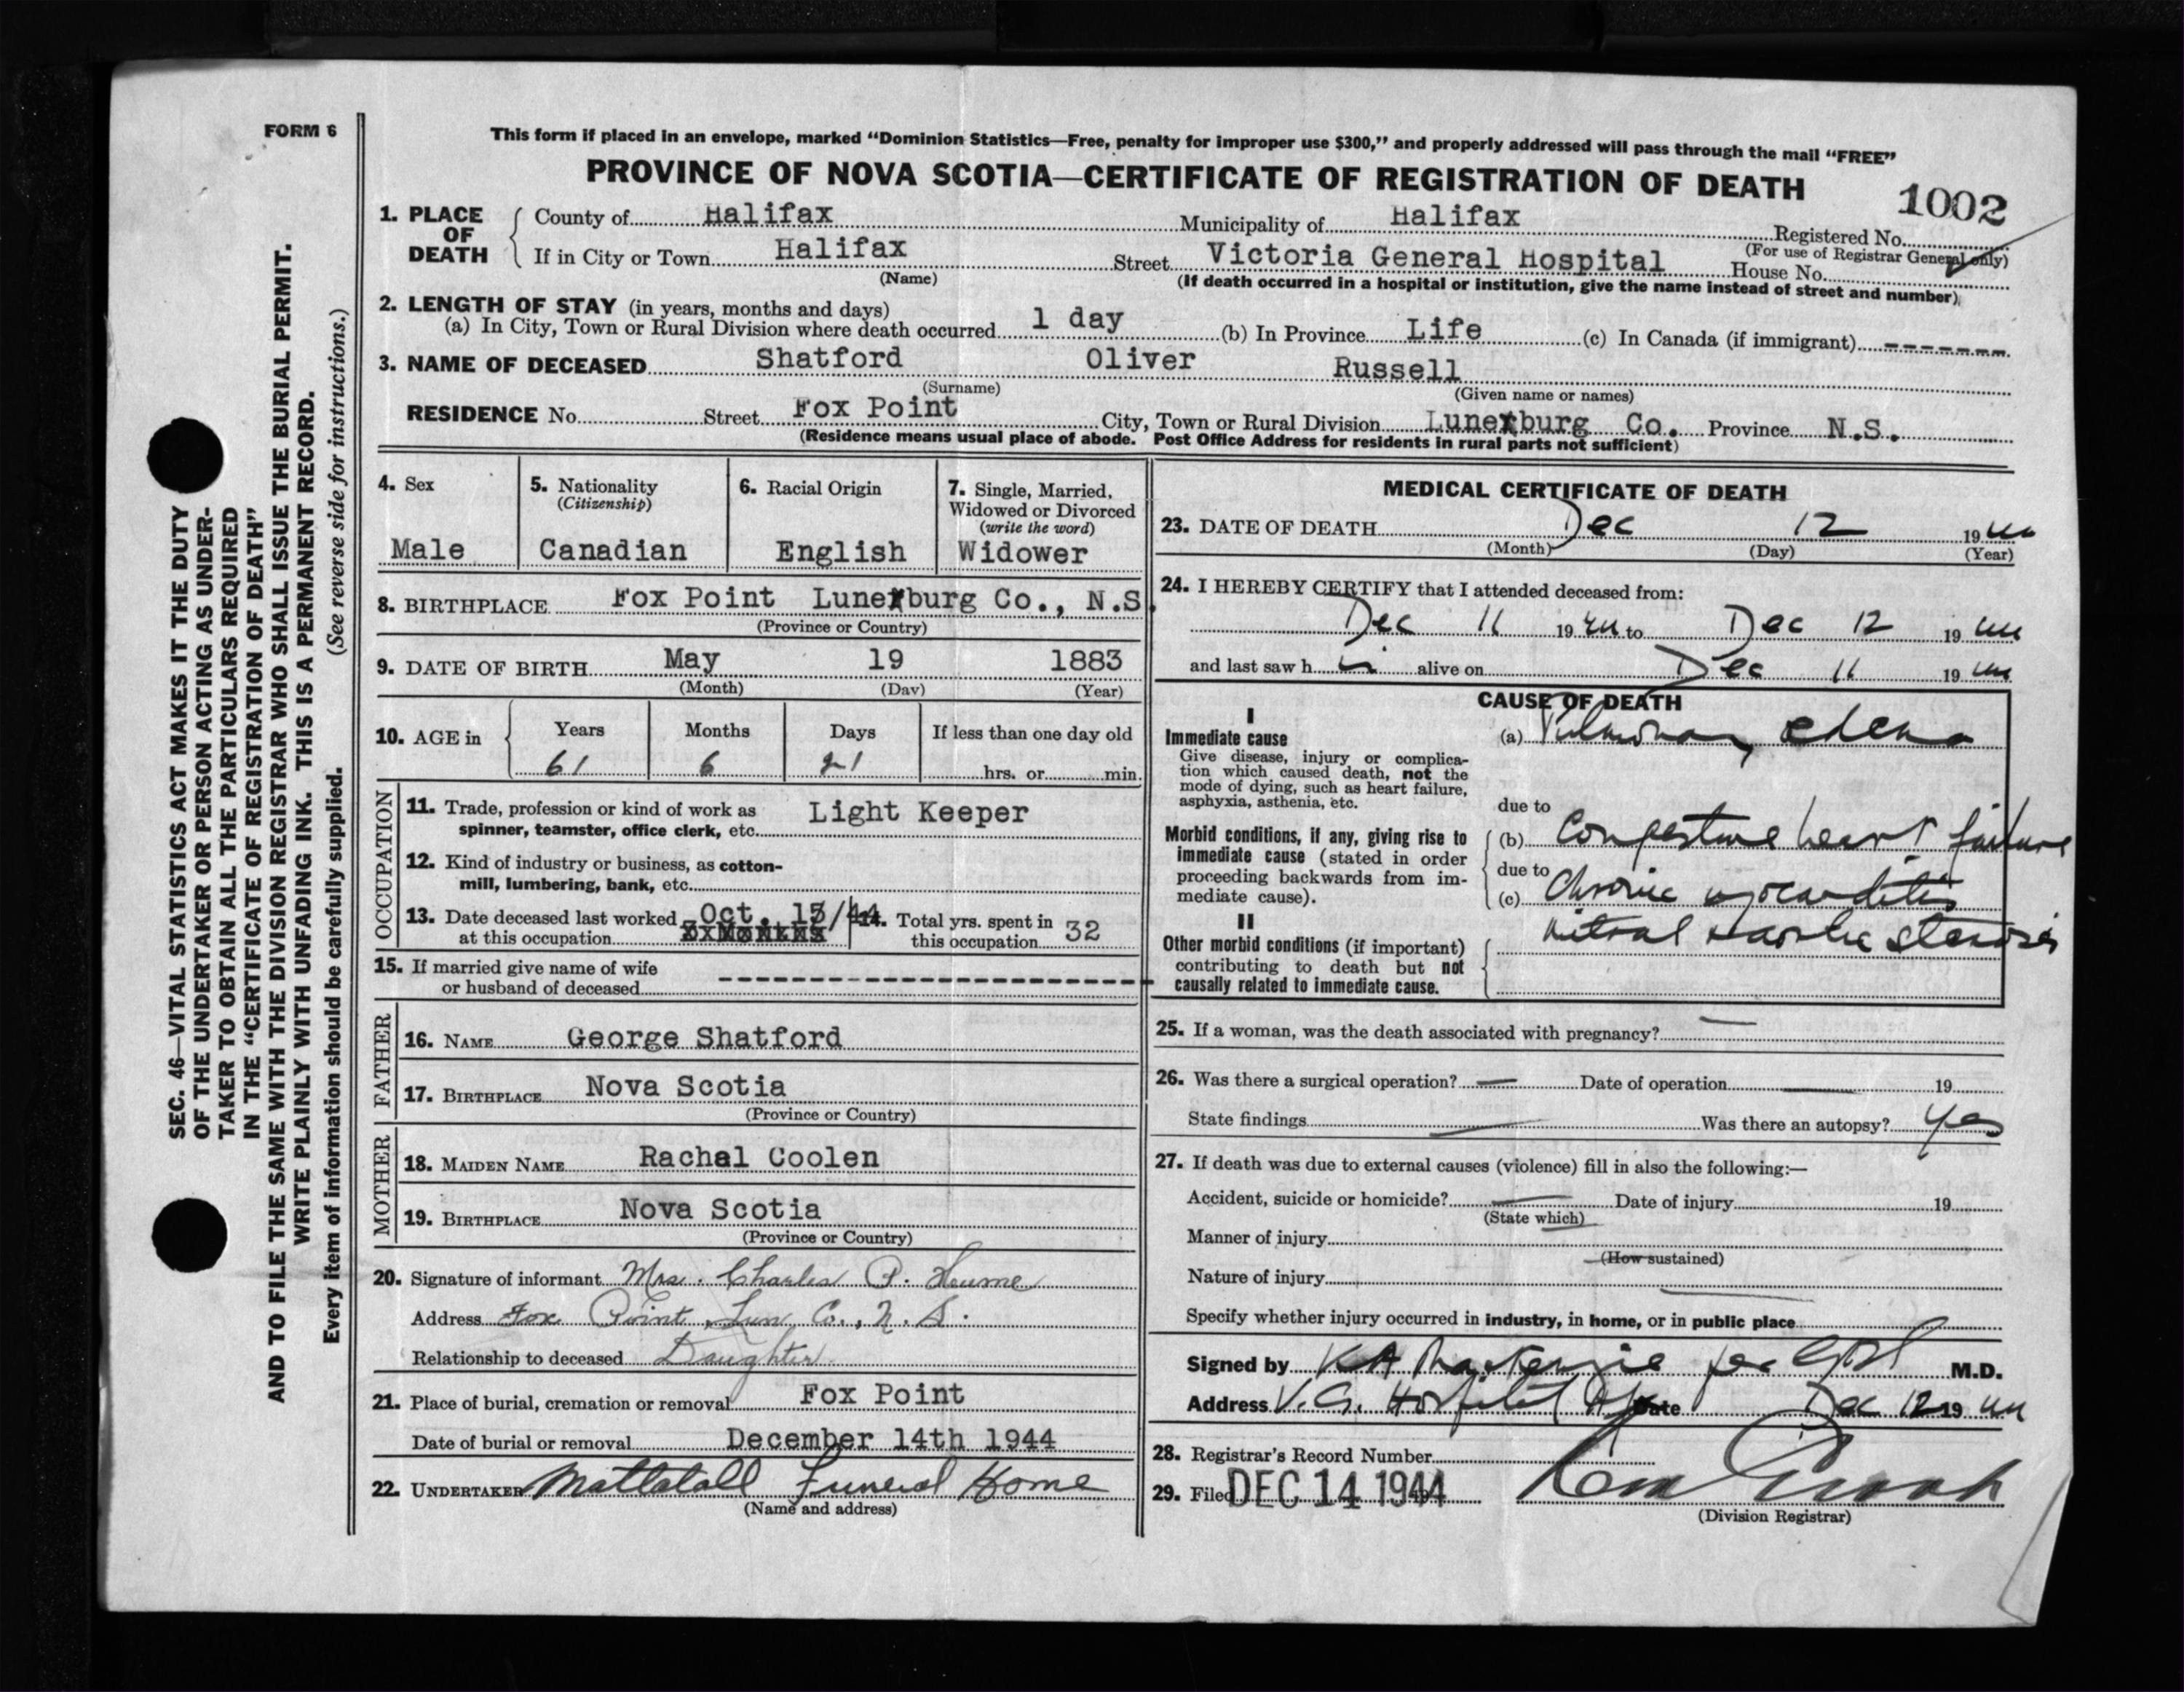 FORM 6
This form if placed in an envelope, marked "Dominion Statistics—Free, penalty for improper use $300," and properly addressed will pass through the mail "FREE"
PROVINCE OF NOVA SCOTIA—CERTIFICATE OF REGISTRATION OF DEATH
1002
1. PLACE OF DEATH
County of Halifax Municipality of Halifax Registered No.
(For use of Registrar General only)
If in City or Town Halifax Street Victoria General Hospital House No.
(Name) (If death occurred in a hospital or institution, give the name instead of street and number)
2. LENGTH OF STAY (in years, months and days)
(a) In City, Town or Rural Division where death occurred 1 day (b) In Province Life (c) In Canada (if immigrant) -------
3. NAME OF DECEASED Shatford Oliver Russell
(Surname) (Given name or names)
RESIDENCE No. Street Fox Point City, Town or Rural Division Lunenburg Co. Province N.S.
(Residence means usual place of abode. Post Office Address for residents in rural parts not sufficient)
4. Sex
Male
5. Nationality
(Citizenship)
Canadian
6. Racial Origin
English
7. Single, Married, Widowed or Divorced
(write the word)
Widower
8. BIRTHPLACE Fox Point Lunenburg Co., N.S.
(Province or Country)
9. DATE OF BIRTH May 19 1883
(Month) (Day) (Year)
10. AGE in Years Months Days If less than one day old
61 6 21 hrs. or min.
OCCUPATION
11. Trade, profession or kind of work as Light Keeper
spinner, teamster, office clerk, etc.
12. Kind of industry or business, as cotton-
mill, lumbering, bank, etc.
13. Date deceased last worked Oct. 15/44
at this occupation
14. Total yrs. spent in
this occupation 32
15. If married give name of wife
or husband of deceased
FATHER
16. NAME George Shatford
17. BIRTHPLACE Nova Scotia
(Province or Country)
MOTHER
18. MAIDEN NAME Rachel Coolen
19. BIRTHPLACE Nova Scotia
(Province or Country)
20. Signature of informant Mrs. Charles P. Hume
Address Fox Point, Lun. Co., N.S.
Relationship to deceased Daughter
21. Place of burial, cremation or removal Fox Point
Date of burial or removal December 14th 1944
22. UNDERTAKER Mattatall Funeral Home
(Name and address)
MEDICAL CERTIFICATE OF DEATH
23. DATE OF DEATH Dec 12 1944
(Month) (Day) (Year)
24. I HEREBY CERTIFY that I attended deceased from:
Dec 11 1944 to Dec 12 1944
and last saw h im alive on Dec 11 1944
CAUSE OF DEATH
I
Immediate cause
Give disease, injury or complica-
tion which caused death, not the
mode of dying, such as heart failure,
asphyxia, asthenia, etc.
(a) Pulmonary edema
due to
Morbid conditions, if any, giving rise to
immediate cause (stated in order
proceeding backwards from im-
mediate cause).
(b) Congestive heart failure
due to
(c) Chronic myocarditis
mitral & aortic stenosis
II
Other morbid conditions (if important)
contributing to death but not
causally related to immediate cause.
25. If a woman, was the death associated with pregnancy? —
26. Was there a surgical operation? — Date of operation — 19
State findings — Was there an autopsy? Yes
27. If death was due to external causes (violence) fill in also the following:—
Accident, suicide or homicide? — Date of injury 19
(State which)
Manner of injury
(How sustained)
Nature of injury
Specify whether injury occurred in industry, in home, or in public place
Signed by K A MacKenzie per M.D.
Address V.G. Hospital Date Dec 12 1944
28. Registrar's Record Number
29. Filed DEC 14 1944
(Division Registrar)
SEC. 46—VITAL STATISTICS ACT MAKES IT THE DUTY
OF THE UNDERTAKER OR PERSON ACTING AS UNDER-
TAKER TO OBTAIN ALL THE PARTICULARS REQUIRED
IN THE "CERTIFICATE OF REGISTRATION OF DEATH"
AND TO FILE THE SAME WITH THE DIVISION REGISTRAR WHO SHALL ISSUE THE BURIAL PERMIT.
WRITE PLAINLY WITH UNFADING INK. THIS IS A PERMANENT RECORD.
Every item of information should be carefully supplied. (See reverse side for instructions.)